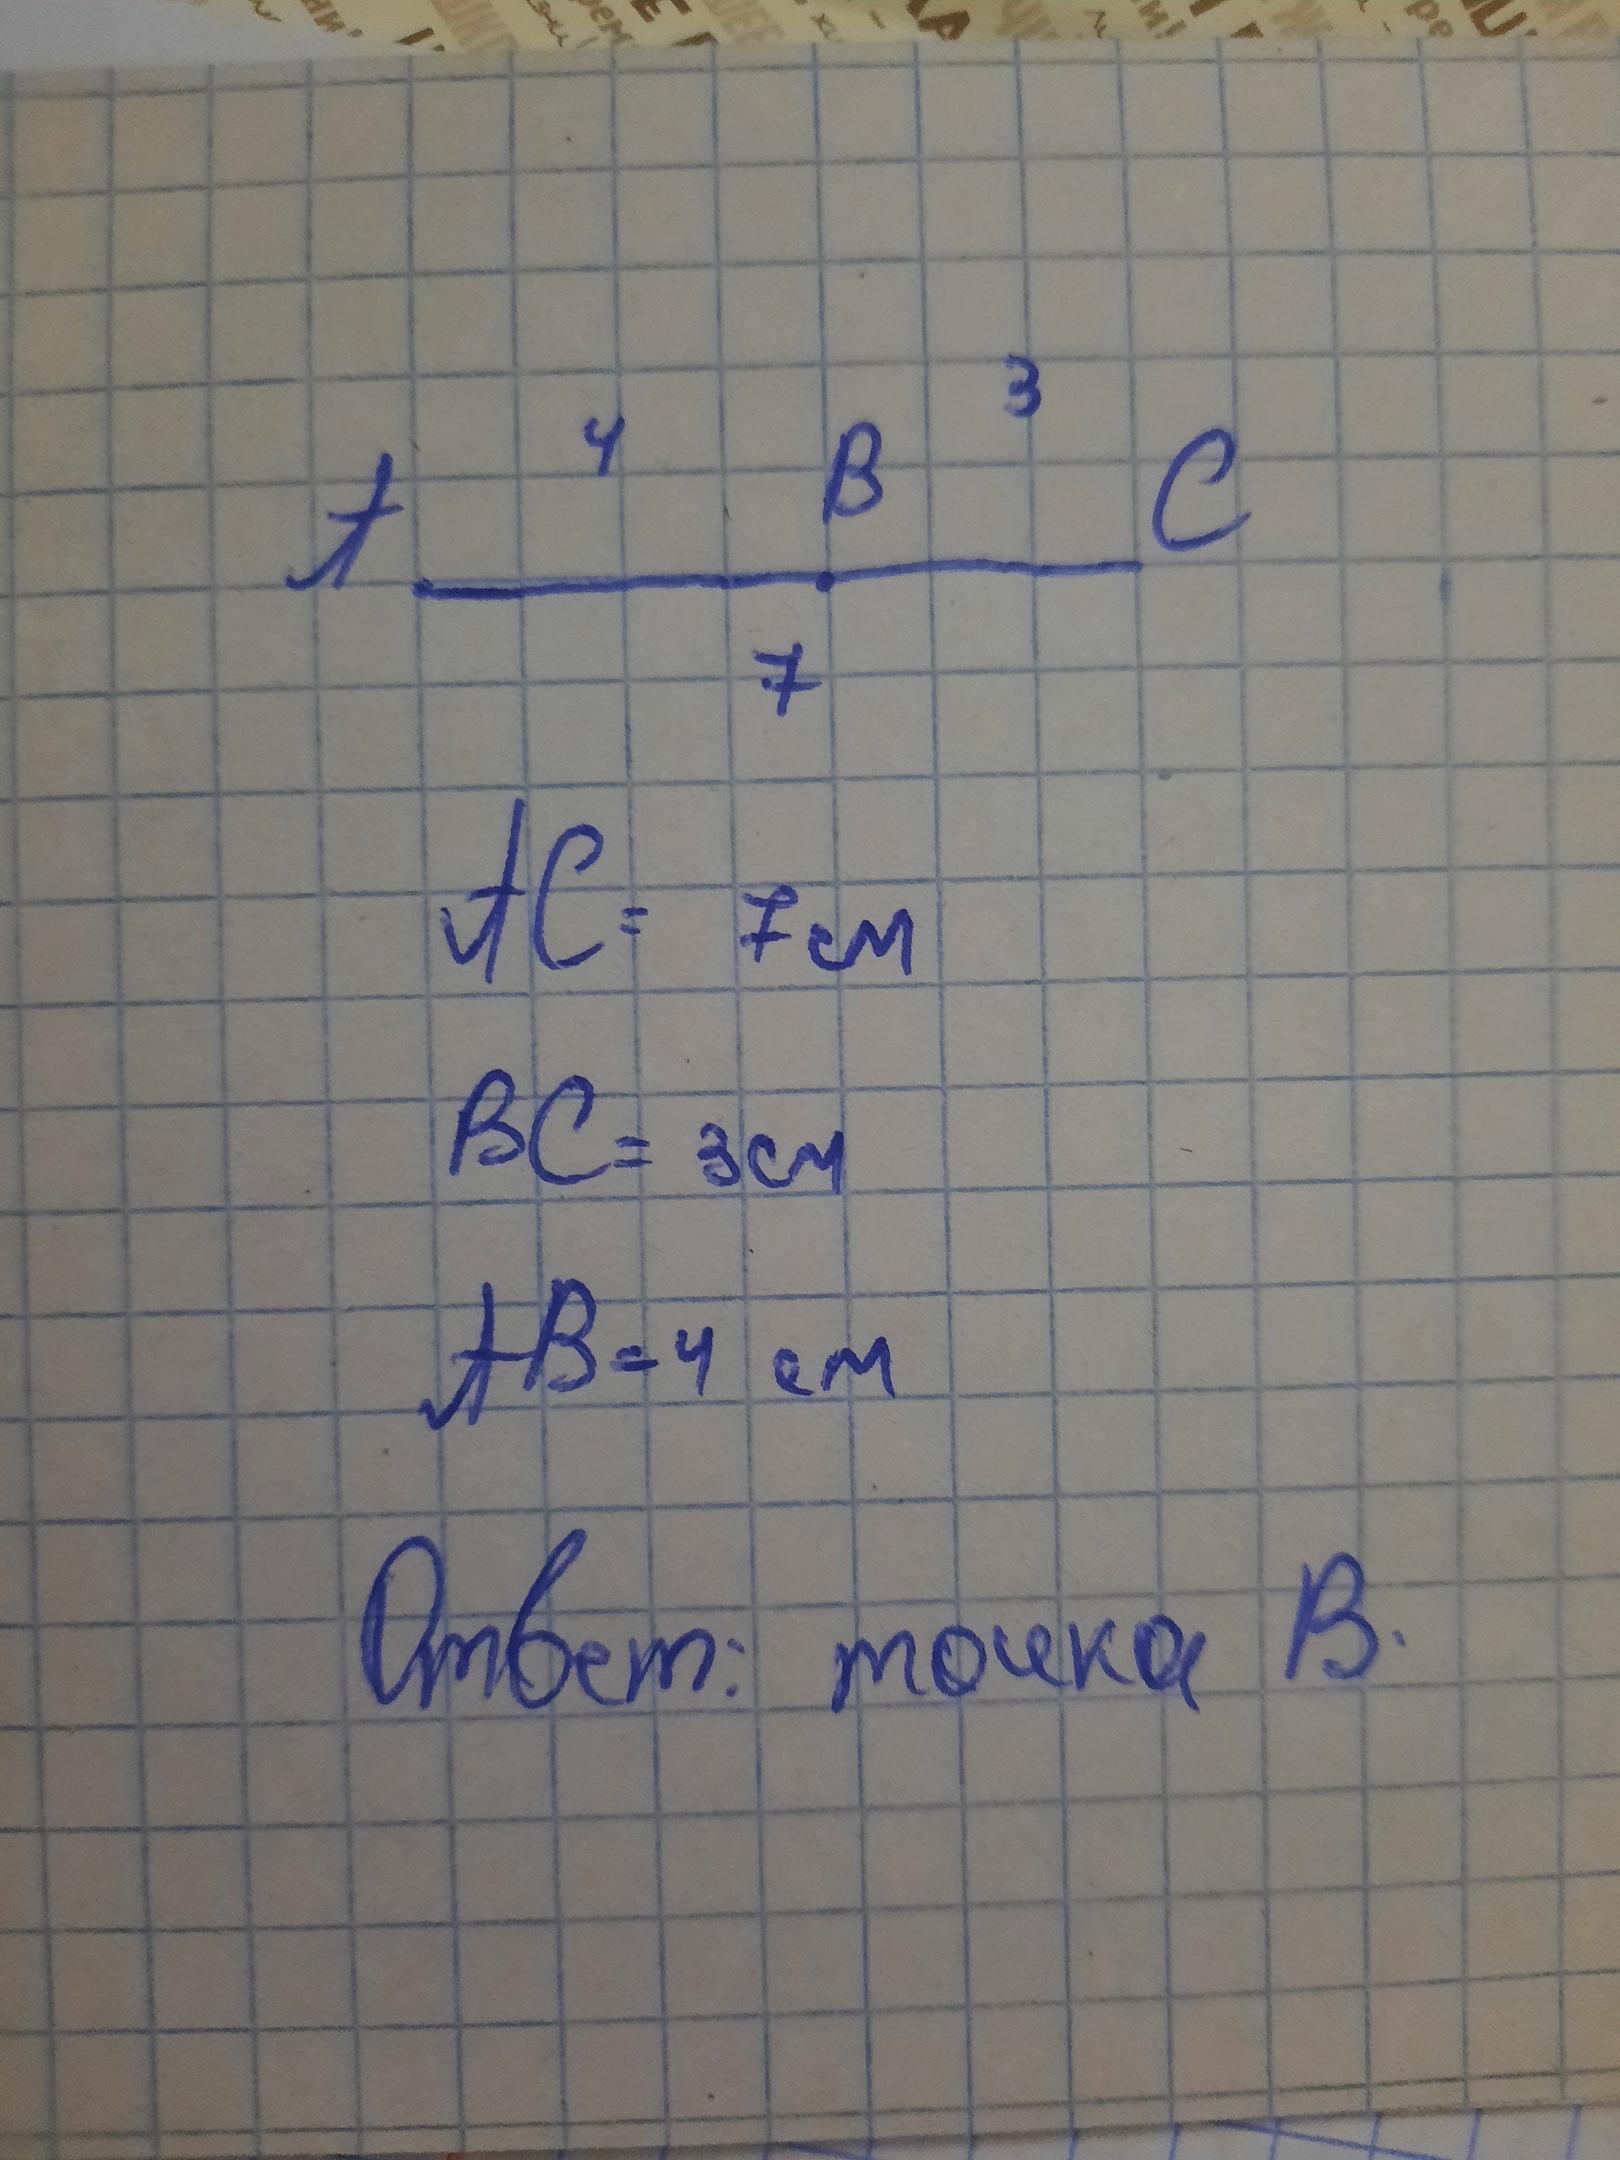 4 3
A B C
7
AC= 7см
BC= 3см
AB=4 см
Ответ: точка B.